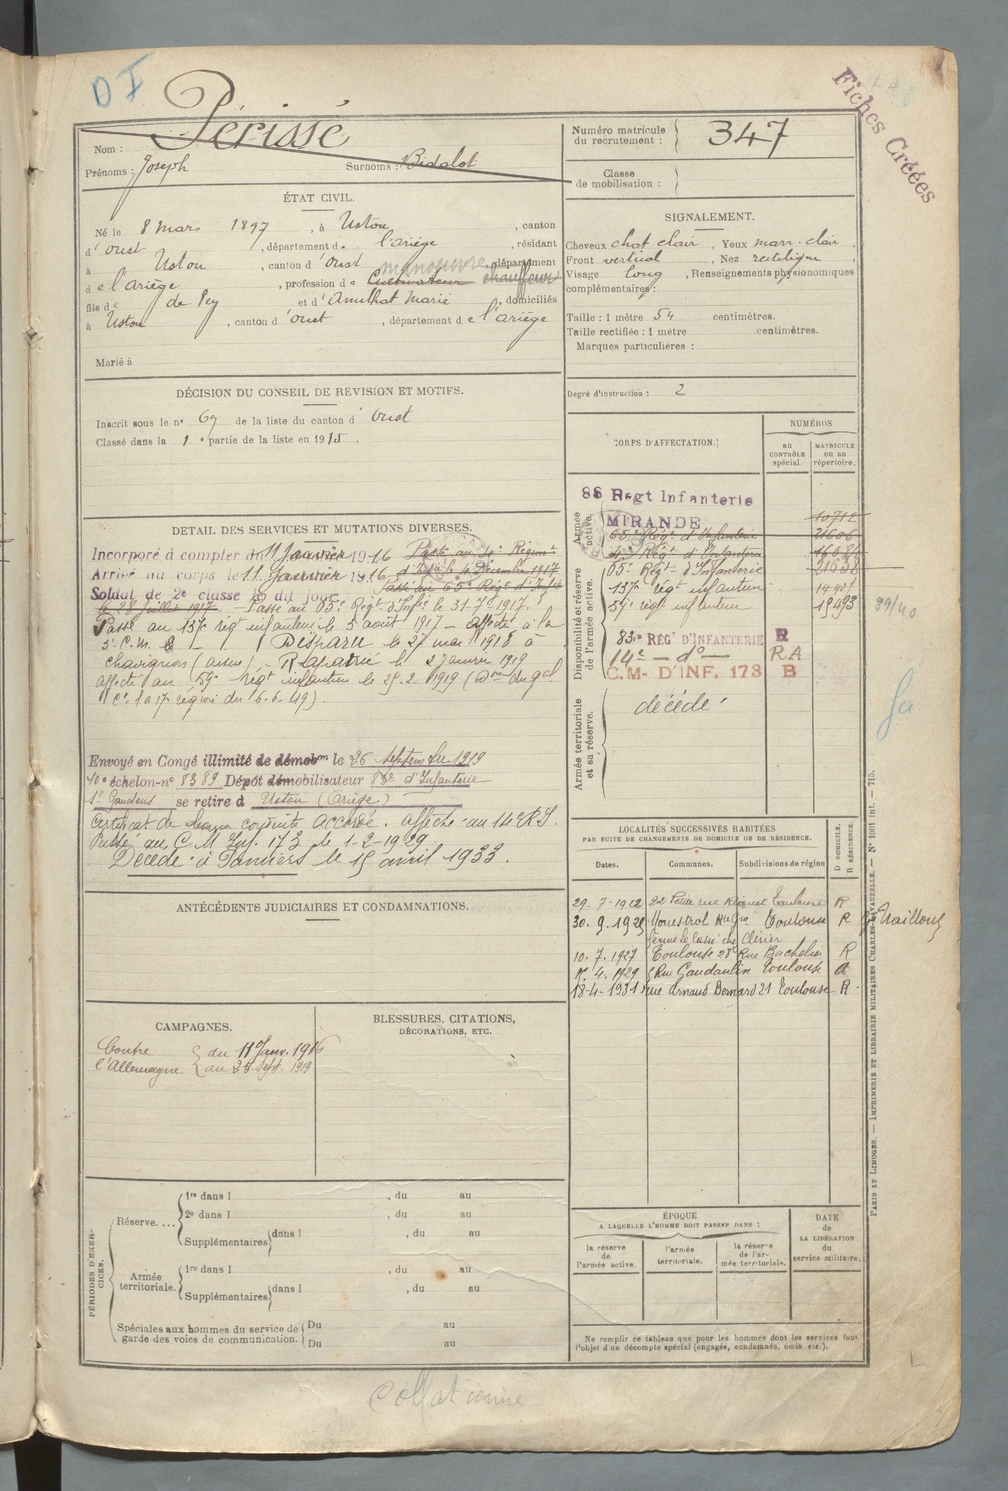 D I
Fiches Créées
Périssé
Nom :
Prénoms : Joseph Surnoms : Bidalot
Numéro matricule du recrutement : 347
Classe de mobilisation :
ÉTAT CIVIL.
Né le 8 mars 1897, à Ustou, canton
d'oust, département de l'ariège, résidant
à Ustou, canton d'oust, département
manoeuvre
de l'ariège, profession de Cultivateur chauffeur
fils de de Pey et d'Amilhat Marie, domiciliés
à Ustou, canton d'oust, département de l'ariège
Marié à
SIGNALEMENT.
Cheveux chat clair, Yeux marr. clair,
Front vertical, Nez rectiligne,
Visage long, Renseignements physionomiques
complémentaires :
Taille : 1 mètre 54 centimètres.
Taille rectifiée : 1 mètre centimètres.
Marques particulières :
Degré d'instruction : 2
DÉCISION DU CONSEIL DE REVISION ET MOTIFS.
Inscrit sous le n° 69 de la liste du canton d'Oust
Classé dans la 1e partie de la liste en 1915.
CORPS D'AFFECTATION.
NUMÉROS
AU CONTRÔLE spécial.
MATRICULE ou au répertoire.
Armée active.
88 Regt Infanterie
MIRANDE
10712
65e Régt d'Infanterie
Régt d'Infanterie
Disponibilité et réserve de l'armée active.
65e Régt d'Infanterie
137e régt infanterie
59e régt infanterie
83e RÉGt D'INFANTERIE R
14e — do — RA
C.M. D'INF. 173 B
Armée territoriale et sa réserve.
décédé
89/40
DETAIL DES SERVICES ET MUTATIONS DIVERSES.
Incorporé à compter du 11 Janvier 1916
Arrivé au corps le 11 Janvier 1916
Soldat de 2e classe le dit jour
le 28 Juillet 1917. - Passé au 65e Régt d'Infie le 31-7-1917.
Passé au 137e régt infanterie le 5 août 1917 - affecté à la
Disparu le 27 mai 1918 à
chavignon (aisne). - Rapatrié le 2 Janvier 1919
affecté au 59e régt infanterie le 25.2.1919
Envoyé en Congé illimité de démobon le 26 septembre 1919
10e échelon-n° 8389 Dépôt démobilisateur 83e d'Infanterie
St Gaudens se retire à Ustou (Ariège)
Certificat de bonne conduite accordé. Affecté au 14e R.I.
Passé au C M Inf. 173 le 1-2-1929
Décédé à Pamiers le 15 avril 1933.
ANTÉCÉDENTS JUDICIAIRES ET CONDAMNATIONS.
LOCALITÉS SUCCESSIVES HABITÉES
PAR SUITE DE CHANGEMENTS DE DOMICILE OU DE RÉSIDENCE.
D DOMICILE. R RÉSIDENCE.
Dates. Communes. Subdivisions de région
29.7.1922 32 Petite rue Riquet Toulouse R
30.9.1925 Toulouse R
10.7.1927 Toulouse 28 Rue Bachelier R
Rue Gaudaulin Toulouse
18-4-1931 rue Arnaud Bernard 21 Toulouse R
CAMPAGNES.
Contre l'Allemagne
du 11 Janv. 1916
au 25 Sept. 1919
BLESSURES, CITATIONS,
DÉCORATIONS, ETC.
PÉRIODES D'EXERCICES.
Réserve....
1re dans l , du au
2e dans l , du au
Supplémentaires dans l , du au
Armée territoriale.
1re dans l , du au
Supplémentaires dans l , du au
Spéciales aux hommes du service de garde des voies de communication.
Du au
Du au
ÉPOQUE
A LAQUELLE L'HOMME DOIT PASSER DANS :
la réserve de l'armée active.
l'armée territoriale.
la réserve de l'armée territoriale.
DATE de LA LIBÉRATION du service militaire.
Ne remplir ce tableau que pour les hommes dont les services font
l'objet d'un décompte spécial (engagés, condamnés, omis etc.).
PARIS ET LIMOGES. — IMPRIMERIE ET LIBRAIRIE MILITAIRES CHARLES-LAVAUZELLE. — N° 1001 int. — 715.
collationné